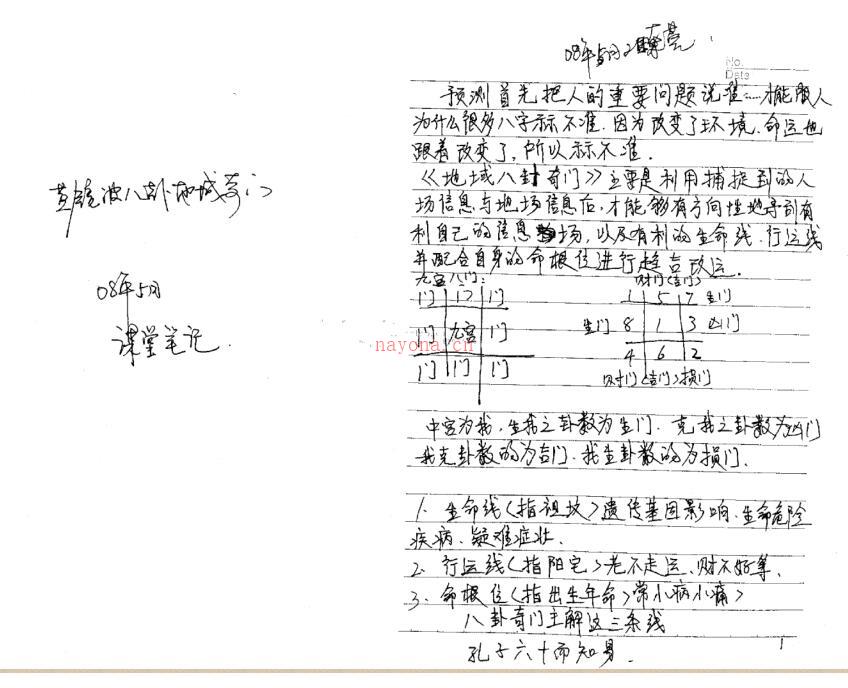 黄鉴波八卦地域奇门
08年5月
课堂笔记
08年5月2
No.
Date
预测首先把人的重要问题说准……才能服人
为什么很多八字标不准.因为改变了环境.命运也
跟着改变了,所以标不准.
《地域八封奇门》主要是利用捕捉到的人
场信息与地场信息后,才能够有方向性地寻到有
利自己的信息场,以及有利的生命线.行运线
并配合自身的命根位进行趋吉改运.
九宫八门:
门 门 门
门 九宫 门
门 门 门
财门(吉门)
1 5 7 生门
生门 8 1 3 凶门
4 6 2
财门(吉门)损门
中宫为我,生我之卦数为生门.克我之卦数为凶门
我克卦数的为吉门.我生卦数的为损门.
1. 生命线(指祖坟)遗传基因影响.生命危险
疾病、疑难症状.
2. 行运线(指阳宅)老不走运、财不好等.
3. 命根位(指出生年命)常小病小痛)
八卦奇门主解这三条线
孔子六十而知易.
1
nayona.cn